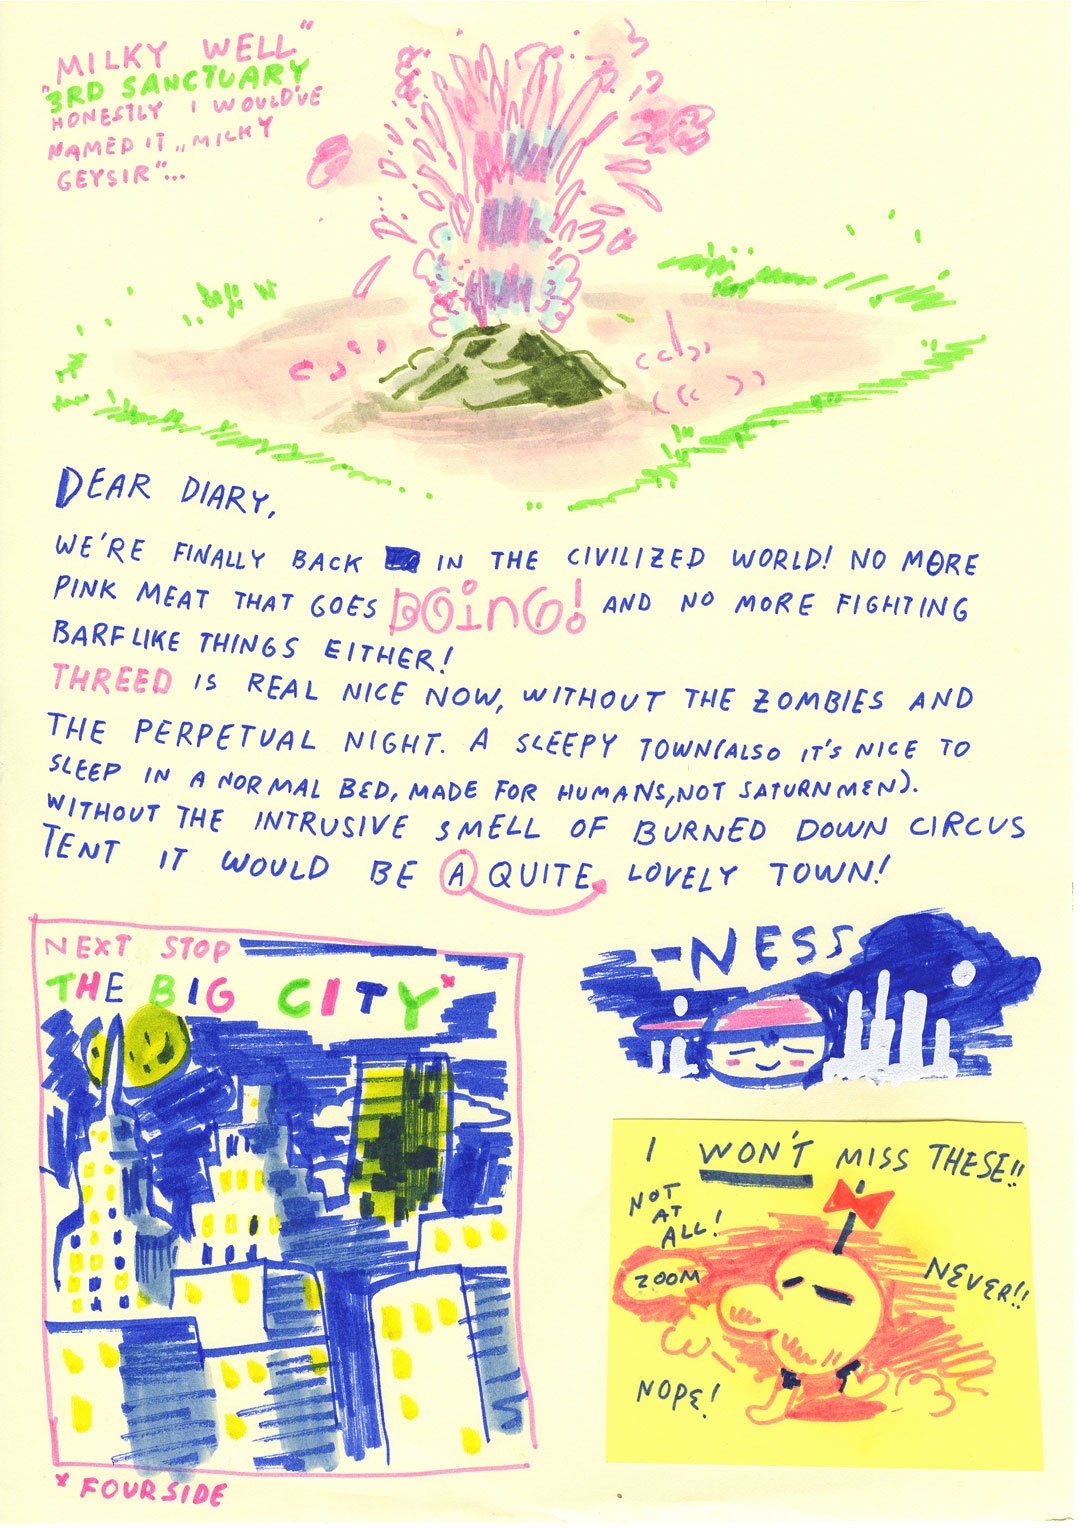 "MILKY WELL"
"3RD SANCTUARY
HONESTLY I WOULD'VE
NAMED IT „MILKY
GEYSIR"...
DEAR DIARY,
WE'RE FINALLY BACK IN THE CIVILIZED WORLD! NO MORE
PINK MEAT THAT GOES BOING! AND NO MORE FIGHTING
BARFLIKE THINGS EITHER!
THREED IS REAL NICE NOW, WITHOUT THE ZOMBIES AND
THE PERPETUAL NIGHT. A SLEEPY TOWN(ALSO IT'S NICE TO
SLEEP IN A NORMAL BED, MADE FOR HUMANS, NOT SATURNMEN).
WITHOUT THE INTRUSIVE SMELL OF BURNED DOWN CIRCUS
TENT IT WOULD BE A QUITE LOVELY TOWN!
--NESS
NEXT STOP
THE BIG CITY*
* FOURSIDE
I WON'T MISS THESE!!
NOT
AT
ALL!
ZOOM
NEVER!!
NOPE!